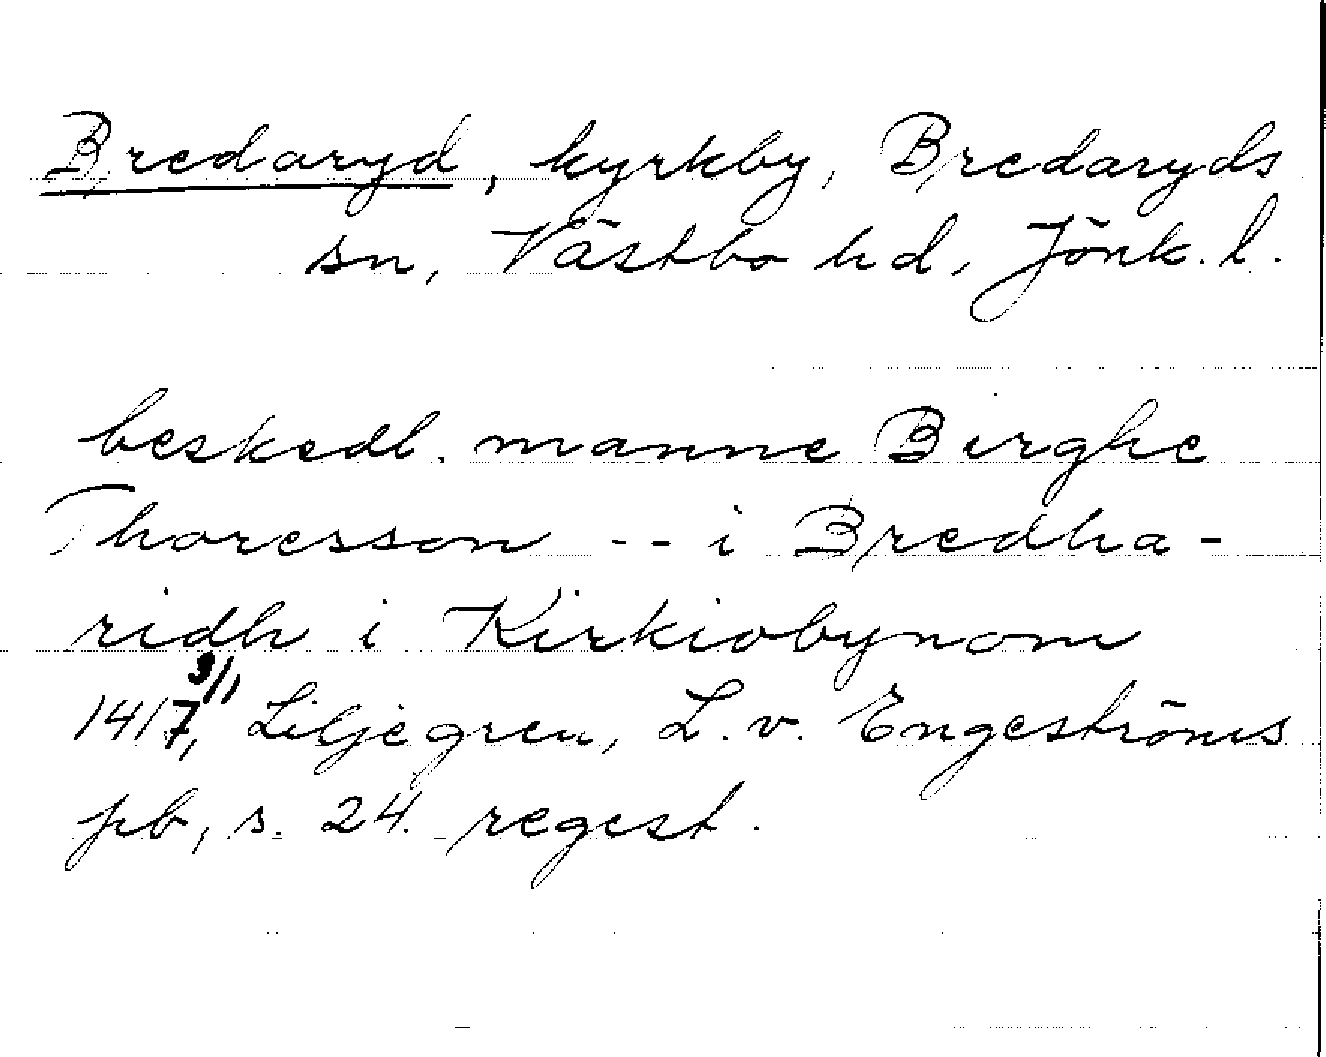 Bredaryd, kyrkby, Bredaryds
sn, Västbo hd, Jönk. l.
beskedl. manne Birghe
Thoresson -- i Bredha-
ridh i Kirkiobynom
1417 9/1, Liljegren, L. v. Engeströms
pb, s. 24. regest.